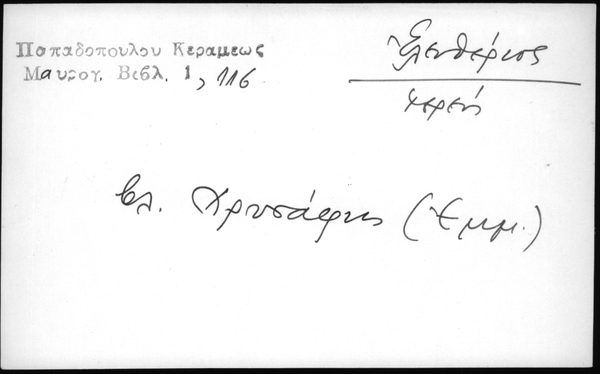 Παπαδοπουλου Κεραμεως
Μαυρογ. Βιβλ. 1, 116
Ἐλευθέριος
ἱερεύς
βλ. Χρυσάφης (Ἐμμ.)